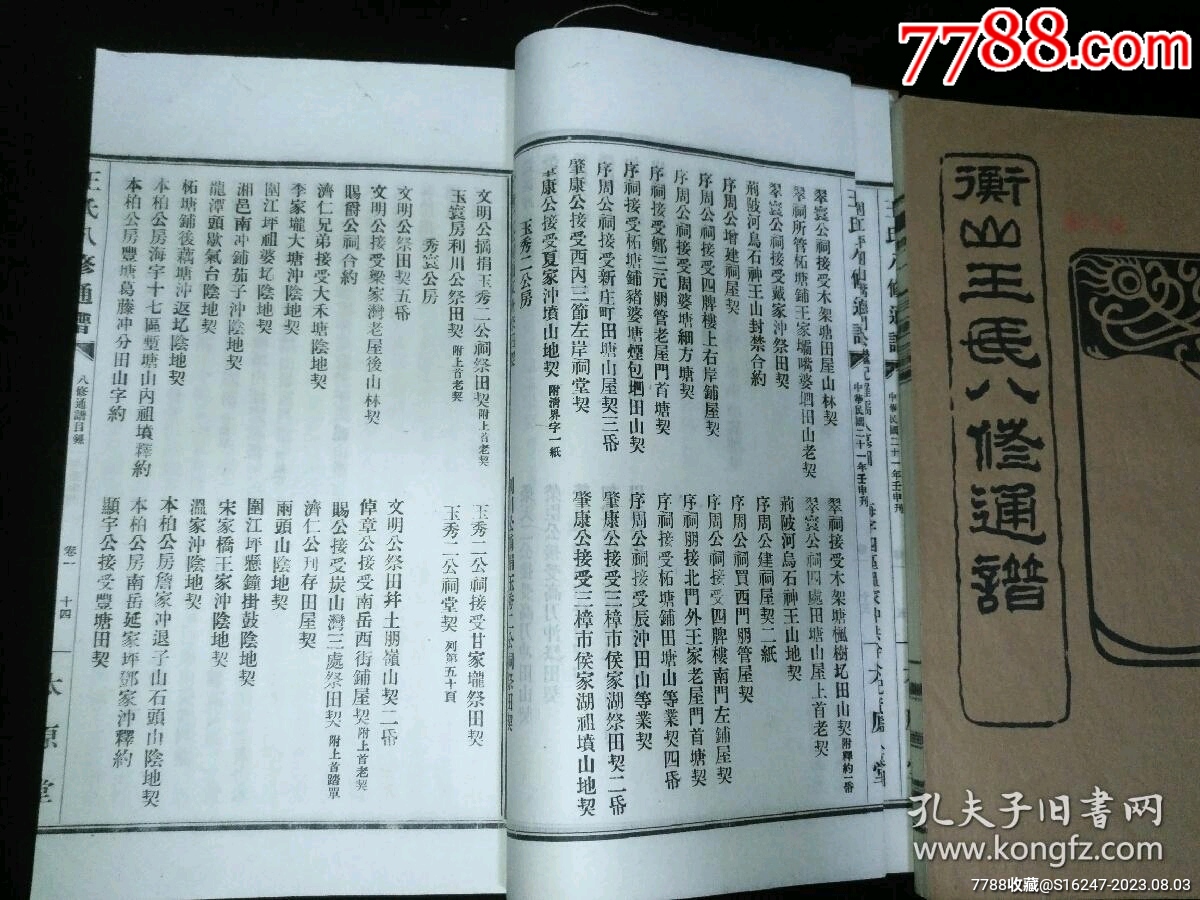 7788.com
衡山王氏八修通譜
翠寰公祠接受木架塘田屋山林契
翠祠所管柘塘鋪王家壩嘴婆垇田山老契
翠寰公祠接受戴家沖祭田契
荊陂河烏石神王山封禁合約
序周公增建祠屋契
序周公接受四牌樓上右岸鋪屋契
序周公接受周婆塘細方塘契
序祠接受鄭三元丽管老屋門首塘契
序祠接受柘塘鋪豬婆塘煙包垇田山契
序周公祠接受新庄町田塘山屋契三帋
肇康公接受西內三節左岸祠堂契
肇康公接受夏家沖墳山地契 附淸界字一紙
玉秀二公房
翠祠接受木架塘楓樹圫田山契 附釋約一帋
翠寰公祠四處田塘山屋上首老契
荊陂河烏石神王山地契
序周公建祠屋契二紙
序周公祠買西門丽管屋契
序周公接受四牌樓南門左鋪屋契
序祠丽接北門外王家老屋門首塘契
序祠接受柘塘鋪田塘山等業契四帋
序周公祠接受辰沖田山等業契
肇康公接受三樟市侯家湖祭田契二帋
肇康公接受三樟市侯家湖祖墳山地契
文明公捐玉秀二公祠祭田契 附上首老契
玉寰房利川公祭田契 附上首老契
秀寰公房
文明公祭田契五帋
文明公接受梁家灣老屋後山林契
賜爵公祠合約
濟仁兄弟接受大禾塘陰地契
李家壠大塘沖陰地契
圍江坪祖婆圫陰地契
湘邑南沖鋪茄子沖陰地契
龍潭頭歇氣台陰地契
柘塘鋪後藕塘沖返圫陰地契
本柏公房海字十七區塹塘山內祖墳釋約
本柏公房豐塘葛藤沖分田山字約
玉秀二公祠接受甘家壠祭田契
玉秀二公祠堂契 列第五十頁
文明公祭田幷土丽嶺山契二帋
倬章公接受南岳西街鋪屋契 附上首老契
賜公接受炭山灣三處祭田契 附上首踏單
濟仁公刊存田屋契
兩頭山陰地契
圍江坪懸鐘掛鼓陰地契
宋家橋王家沖陰地契
溫家沖陰地契
本柏公房詹家沖退子山石頭山陰地契
本柏公房南岳延家坪鄧家沖釋約
顯宇公接受豐塘田契
王氏八修通譜
八修通譜目錄
卷一
十四
太原堂
中華民國二十一年壬申刊
中華民國二十一年壬申刊
孔夫子旧书网
www.kongfz.com
7788收藏@S16247-2023.08.03